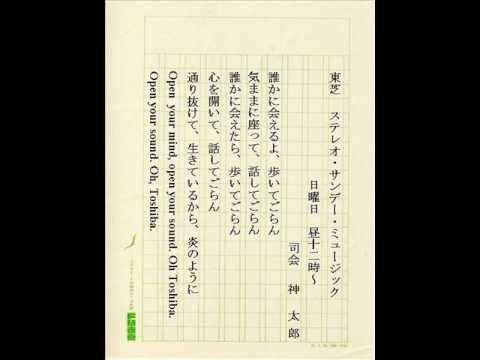 東芝 ステレオ・サンデー・ミュージック
日曜日 昼十二時～
司会 神 太郎
誰かに会えるよ、歩いてごらん
気ままに座って、話してごらん
誰かに会えたら、歩いてごらん
心を開いて、話してごらん
通り抜けて、生きているから、炎のように
Open your mind, open your sound. Oh Toshiba.
Open your sound. Oh, Toshiba.